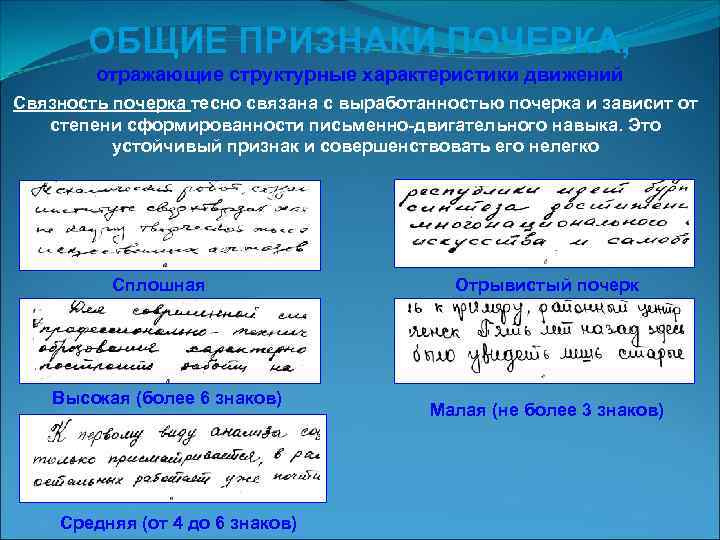 ОБЩИЕ ПРИЗНАКИ ПОЧЕРКА,
отражающие структурные характеристики движений
Связность почерка тесно связана с выработанностью почерка и зависит от
степени сформированности письменно-двигательного навыка. Это
устойчивый признак и совершенствовать его нелегко
институте
не
искусственных
Сплошная
республики идет
синтоза достижени
многонационального
искусства и самобы
Отрывистый почерк
Для современной си
профессионально- технич
образования характерно
построить работу на
Высокая (более 6 знаков)
ь к примеру, районный центр
ченск Пять лет назад здес
было увидеть лишь старые
Малая (не более 3 знаков)
К первому виду анализа со
только присматривается, в ра
остальных работает уже почти
Средняя (от 4 до 6 знаков)